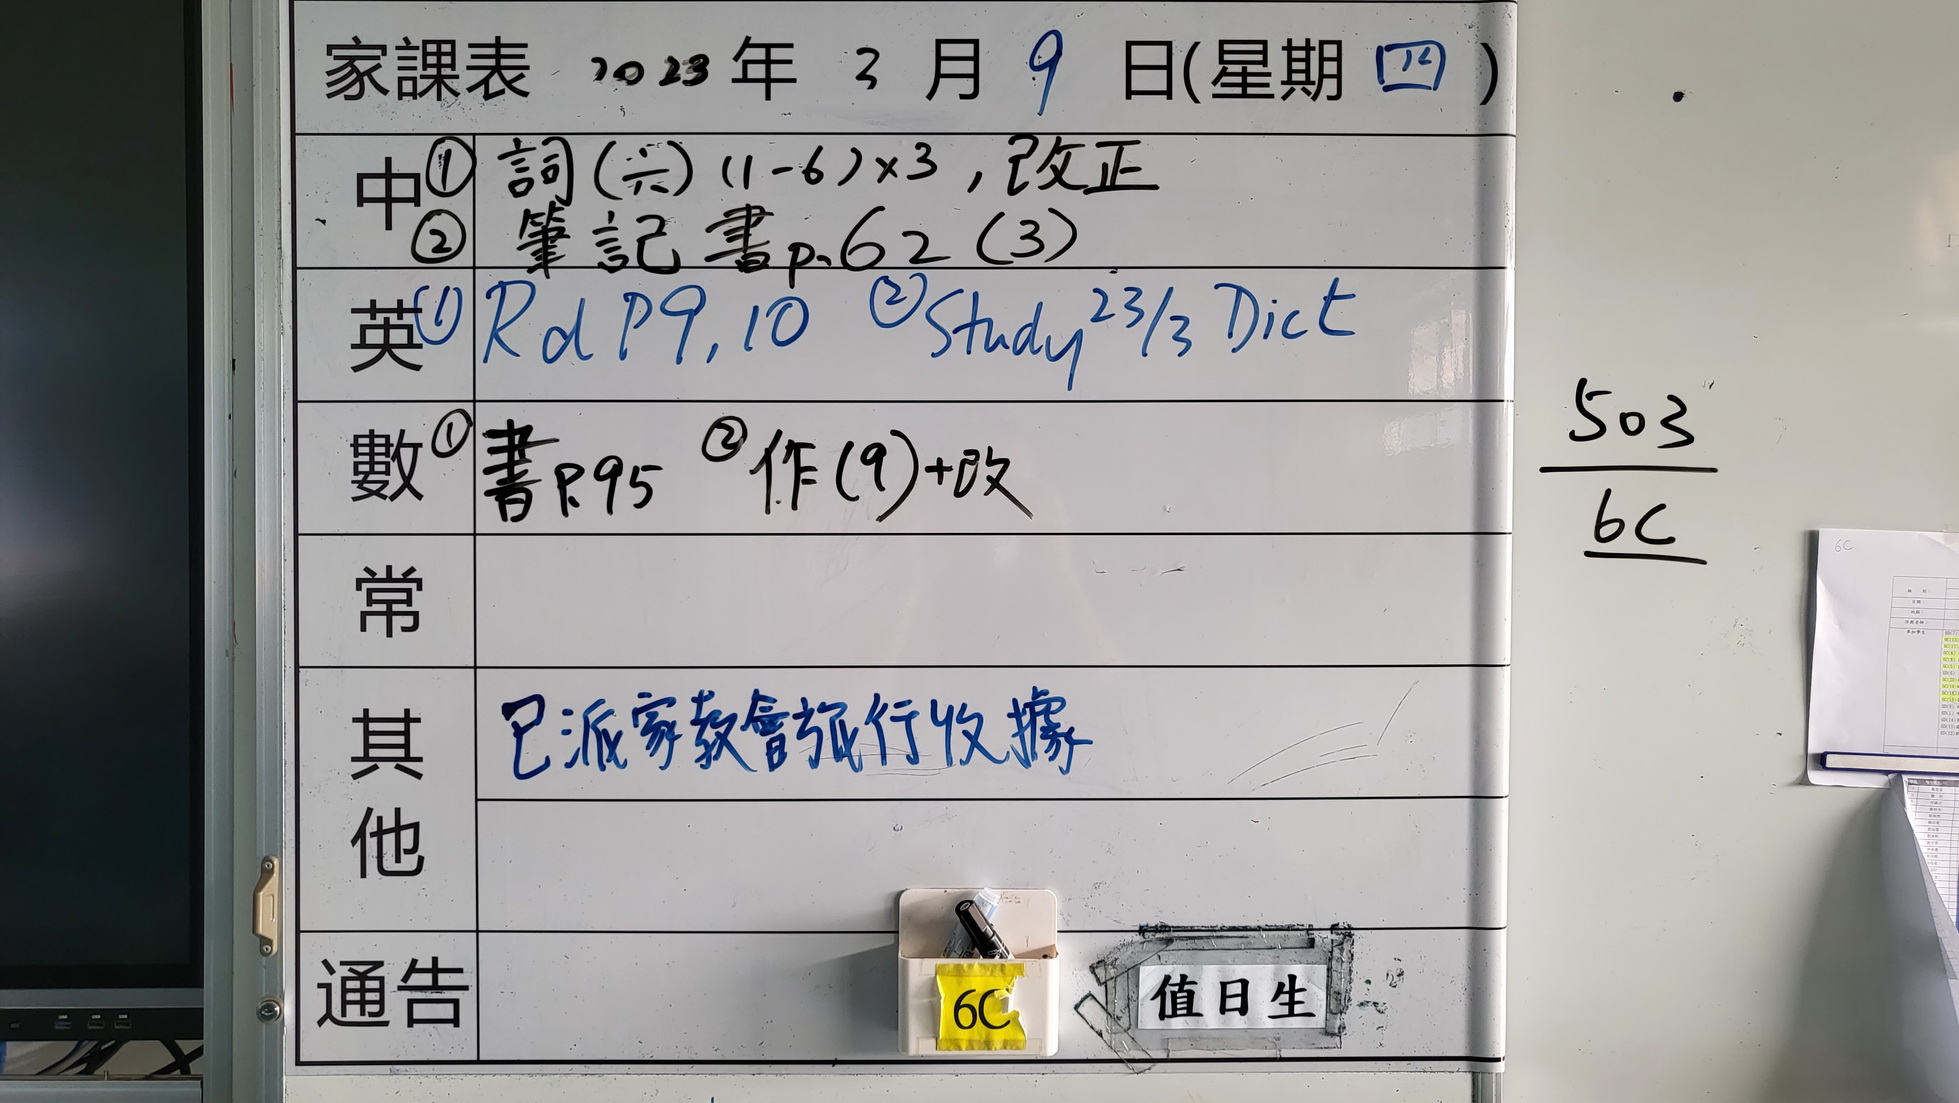 家課表 2023 年 3 月 9 日(星期 四 )
中 ① 詞(六) (1-6)×3 , 改正
② 筆記書 p.62 (3)
英 ① Rd P9,10 ② Study 23/3 Dict
數 ① 書P.95 ② 作(9)+改
常
其他
已派家教會旅行收據
通告
6C
值日生
503
6C
6C